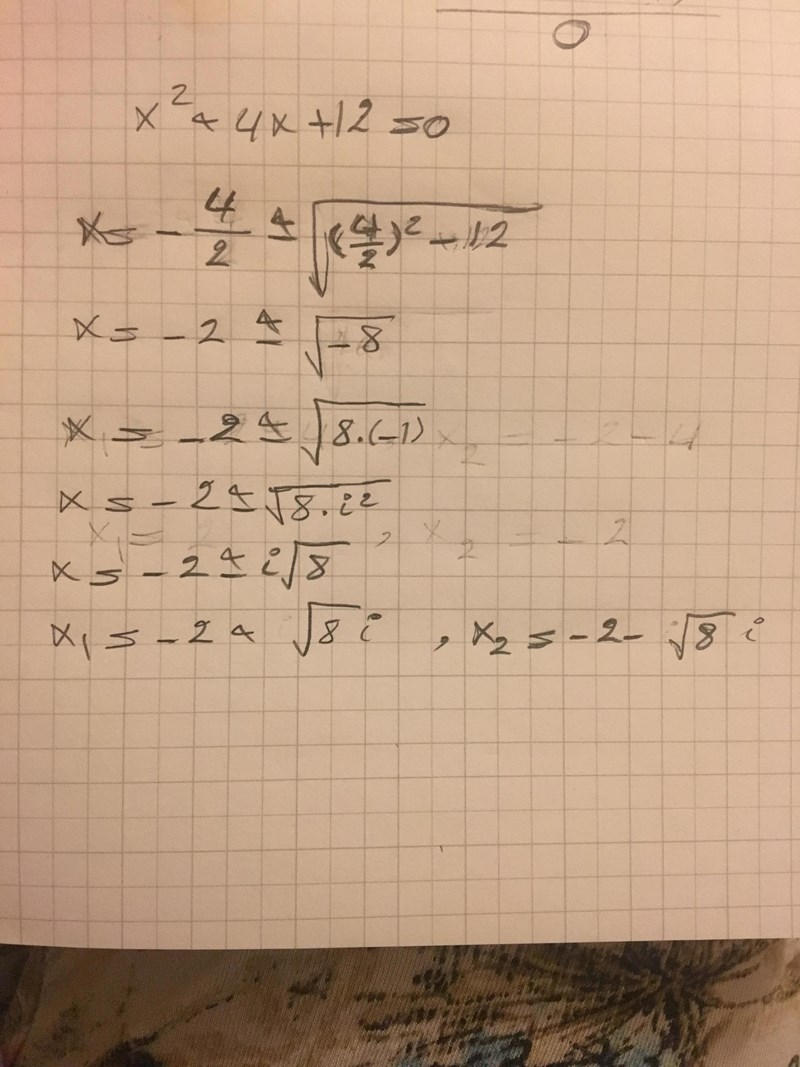 0
x² + 4x + 12 = 0
x = - 4/2 ± √((4/2)² - 12)
x = -2 ± √-8
x = -2 ± √8·(-1)
x₂ = -2 - 4
x = -2 ± √8·i²
x₁ = 2 , x₂ = -2
x = -2 ± i√8
x₁ = -2 + √8 i , x₂ = -2 - √8 i